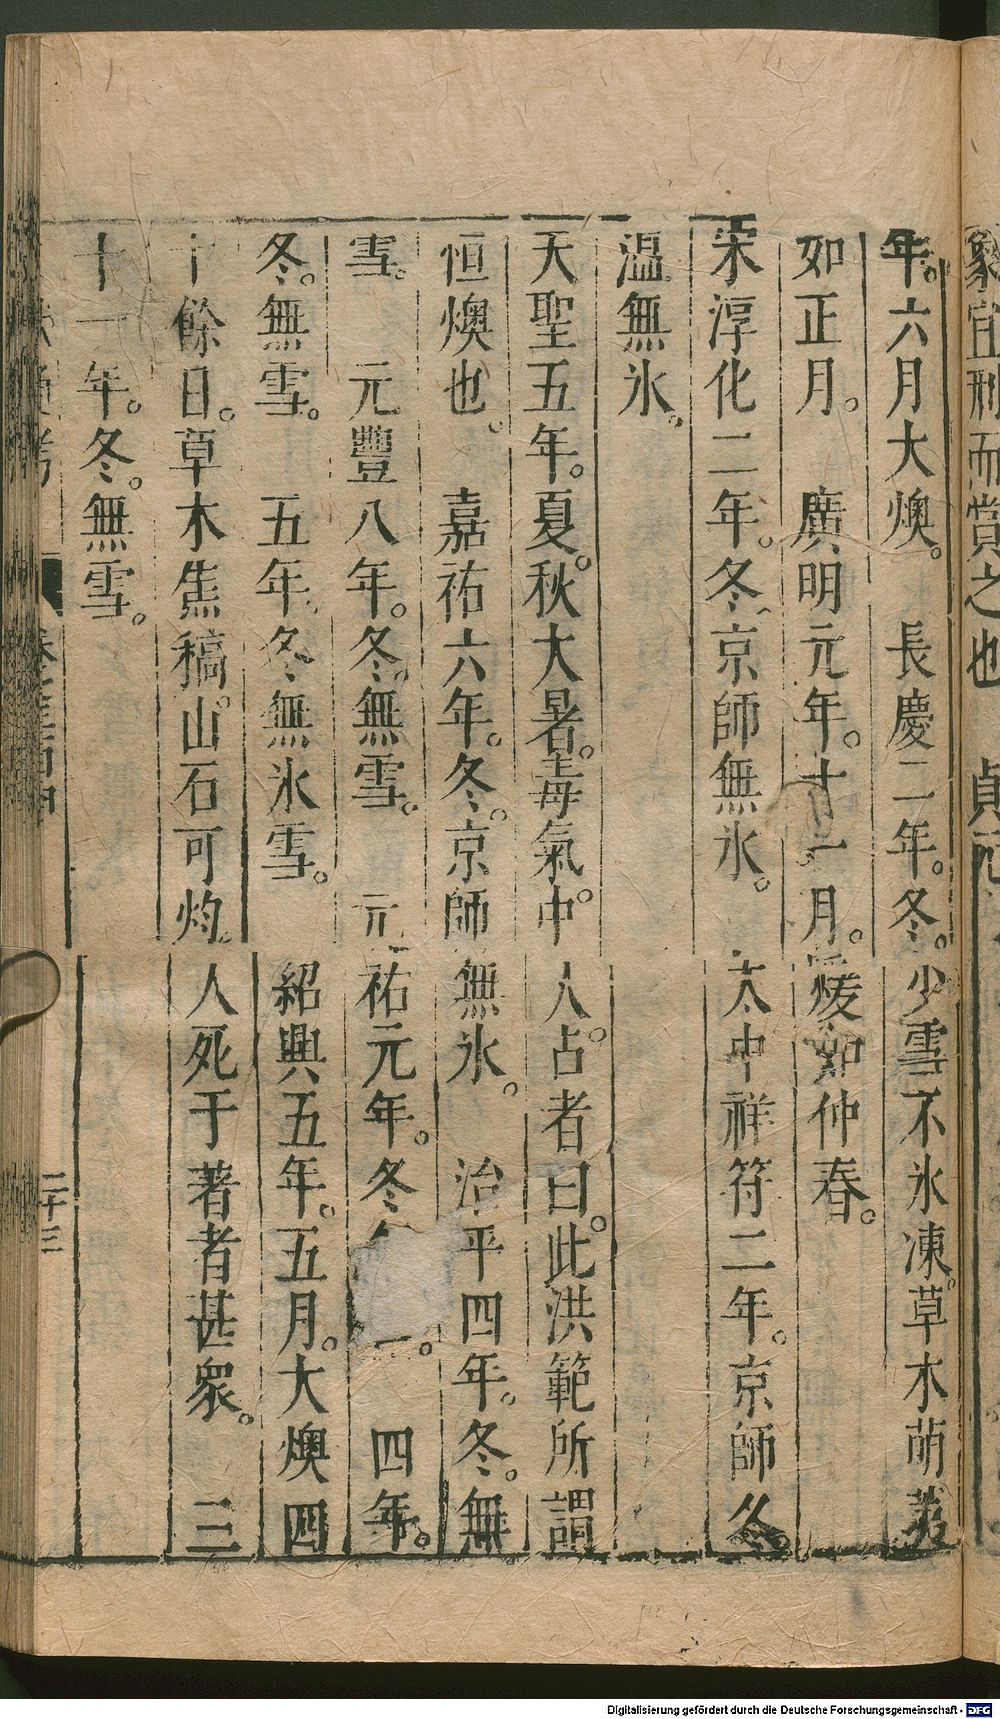 象宜刑而賞之也　貞元
年。六月大燠。　長慶二年。冬。少雪不氷凍。草木萌
如正月。　廣明元年。十一月。煖如仲春。
宋淳化二年。冬京師無氷。　大中祥符二年。京師冬
温無氷。
天聖五年。夏。秋大暑。毒氣中人。占者曰。此洪範所謂
恒燠也。　嘉祐六年。冬。京師無氷。　治平四年。冬。無
雪。　元豐八年。冬。無雪。　元祐元年。冬　四年。
冬。無雪。　五年。冬無氷雪。　紹興五年。五月。大燠四
十餘日。草木焦稿。山石可灼。人死于著者甚衆。　三
十一年。冬。無雪。
二十三
Digitalisierung gefördert durch die Deutsche Forschungsgemeinschaft - DFG